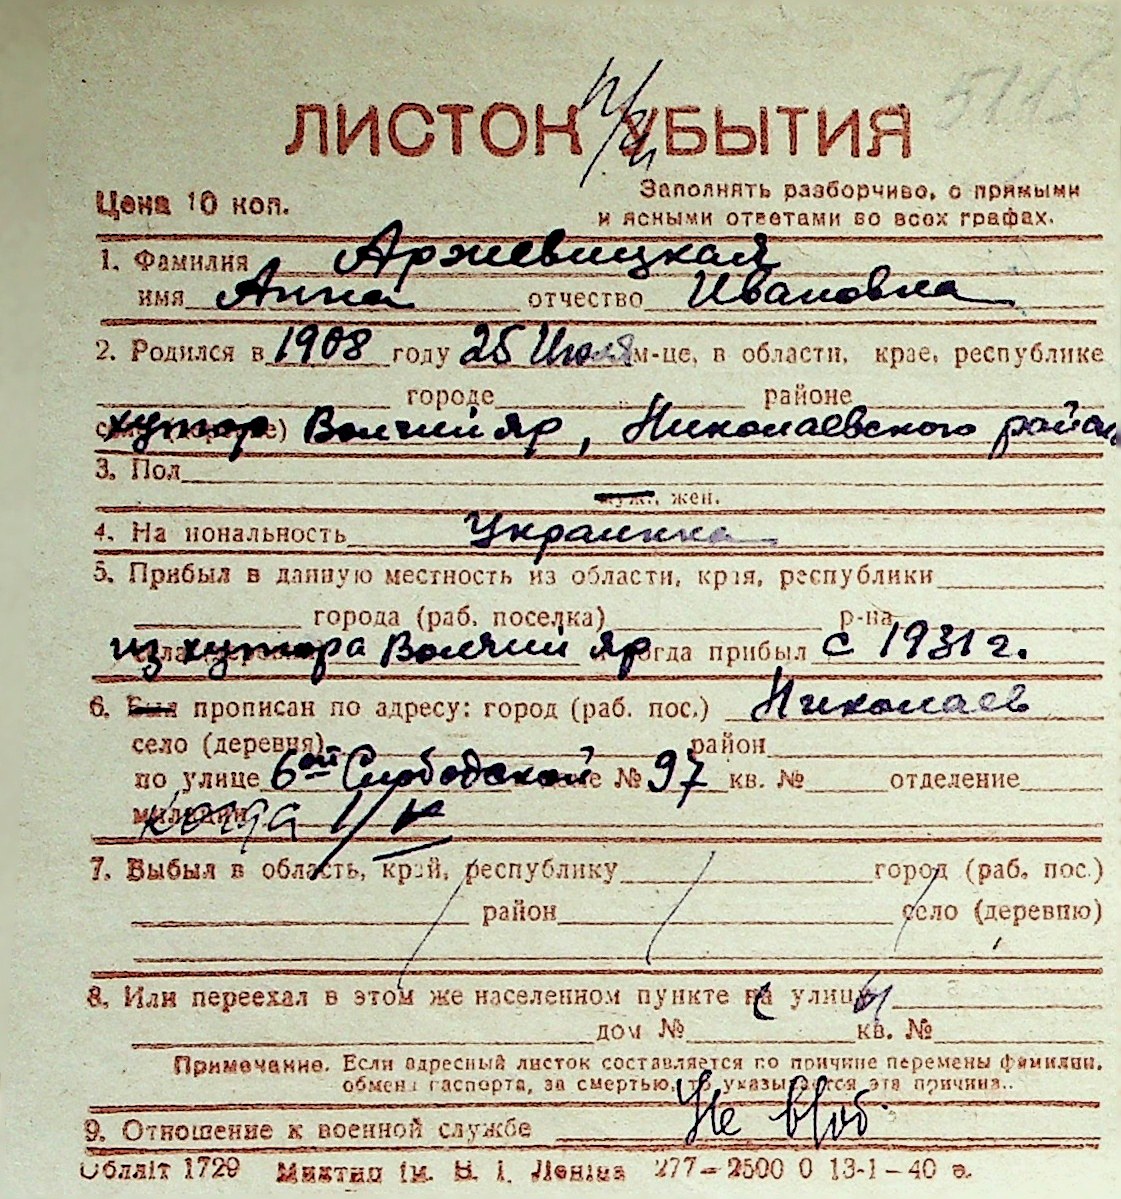 5115
ЛИСТОК УБЫТИЯ
Цена 10 коп.
Заполнять разборчиво, с прямыми
и ясными ответами во всех графах.
1. Фамилия Аржевицкая
имя Анна отчество Ивановна
2. Родился в 1908 году 25 Июля м-це, в области, крае, республике
городе районе
хутор Волчий яр, Николаевского района
3. Пол
мужч. жен.
4. На иональность Украинка
5. Прибыл в данную местность из области, края, республики
города (раб. поселка) р-на
из хутора Волчий яр когда прибыл с 1931 г.
6. Был прописан по адресу: город (раб. пос.) Николаев
село (деревня) район
по улице 6ой Слободской № 97 кв. № отделение
милиции когда
7. Выбыл в область, край, республику город (раб. пос.)
район село (деревню)
8. Или переехал в этом же населенном пункте на улицу
дом № кв. №
Примечание. Если адресный листок составляется по причине перемены фамилии,
обмена паспорта, за смертью, то указывается эта причина..
9. Отношение к военной службе Не в/об.
Обліт 1729 Миктип ім. В. І. Леніна 277—2500 0 13-1—40 в.